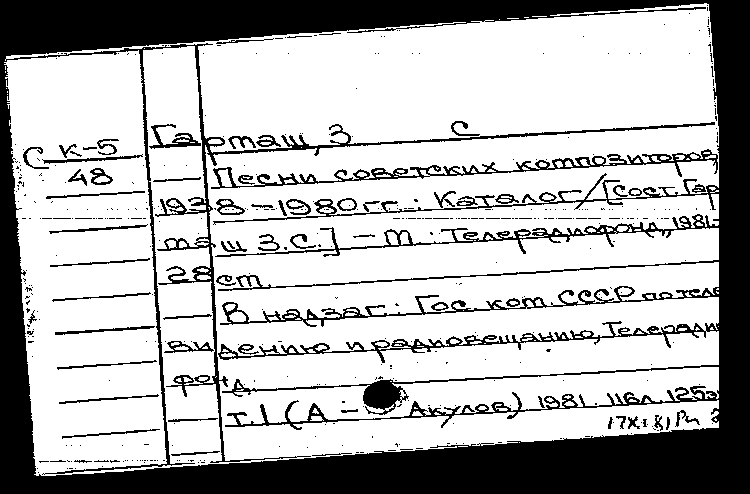 Гарташ, З С
С к-5
48
Песни советских композиторов,
1938-1980гг.: Каталог/[сост. Гар
таш З.С.] - М.: Телерадиофонд, 1981.-
28 ст.
В надзаг: Гос. ком. СССР по теле
видению и радиовещанию, Телерадио
фонд.
т.1 (А - Акулов) 1981. 116л. 125э